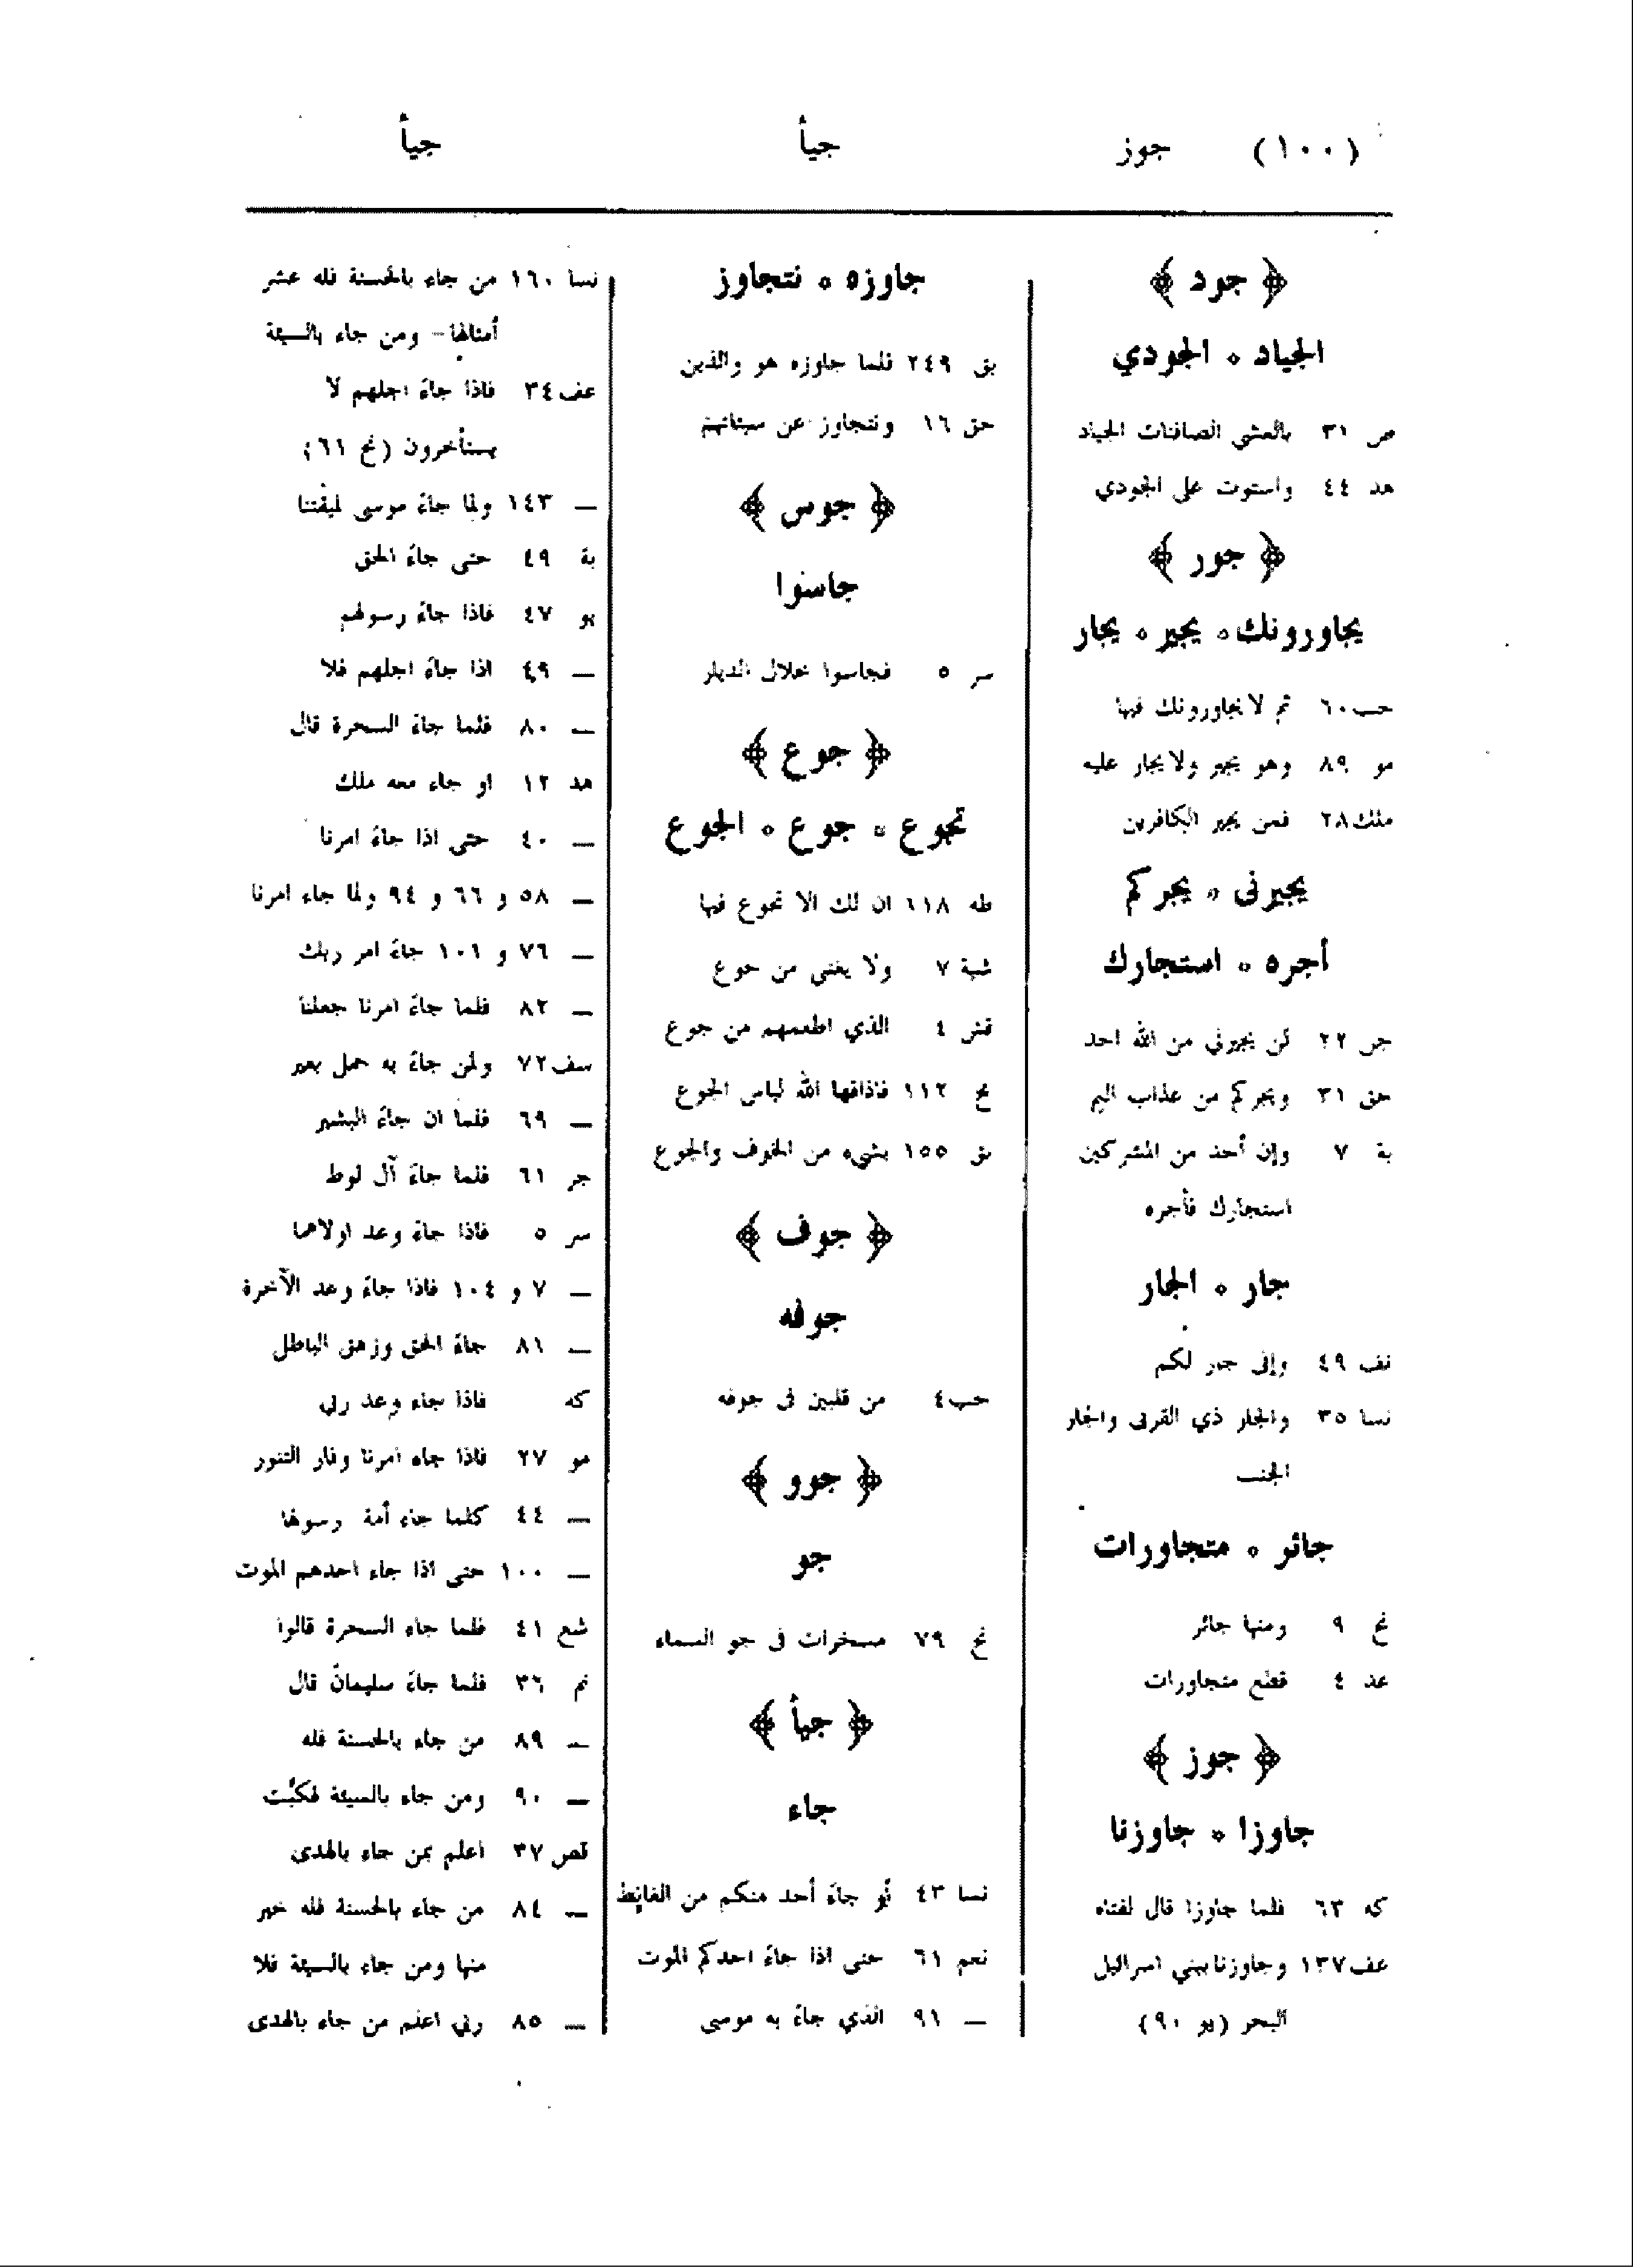 (١٠٠) جوز جيأ جيأ
﴿ جود ﴾
الجياد ٥ الجودي
ص ٣١ بالعشي الصافنات الجياد
هد ٤٤ واستوت على الجودي
﴿ جور ﴾
يجاورونك ٥ يجير ٥ يجار
حب ٦٠ ثم لا يجاورونك فيها
مو ٨٩ وهو يجير ولا يجار عليه
ملك ٢٨ فمن يجير الكافرين
يجيرنى ٥ يجركم
أجره ٥ استجارك
جن ٢٢ لن يجيرني من الله احد
حق ٣١ ويجركم من عذاب اليم
بة ٧ وإن أحد من المشركين
استجارك فأجره
جار ٥ الجار
نف ٤٩ وإنى جار لكم
نسا ٣٥ والجار ذي القربى والجار
الجنب
جائر ٥ متجاورات
نح ٩ ومنها جائر
عد ٤ قطع متجاورات
﴿ جوز ﴾
جاوزا ٥ جاوزنا
كه ٦٣ فلما جاوزا قال لفتاه
عف ١٣٧ وجاوزنا ببني اسرائيل
البحر (يو ٩٠)
جاوزه ٥ نتجاوز
بق ٢٤٩ فلما جاوزه هو والذين
حق ١٦ ونتجاوز عن سيئاتهم
﴿ جوس ﴾
جاسوا
سر ٥ فجاسوا خلال الديار
﴿ جوع ﴾
تجوع ٥ جوع ٥ الجوع
طه ١١٨ ان لك الا تجوع فيها
شية ٧ ولا يغني من جوع
قش ٤ الذي اطعمهم من جوع
نح ١١٢ فاذاقها الله لباس الجوع
بق ١٥٥ بشيء من الخوف والجوع
﴿ جوف ﴾
جوفه
حب ٤ من قلبين فى جوفه
﴿ جوو ﴾
جو
نح ٧٩ مسخرات فى جو السماء
﴿ جيأ ﴾
جاء
نسا ٤٣ أو جاء أحد منكم من الغائط
نعم ٦١ حتى اذا جاء احدكم الموت
— ٩١ الذي جاء به موسى
نسا ١٦٠ من جاء بالحسنة فله عشر
أمثالها – ومن جاء بالسيئة
عف ٣٤ فاذا جاء اجلهم لا
يستأخرون (نح ٦١)
— ١٤٣ ولما جاء موسى لميقتنا
بة ٤٩ حتى جاء الحق
يو ٤٧ فاذا جاء رسولهم
— ٤٩ اذا جاء اجلهم فلا
— ٨٠ فلما جاء السحرة قال
هد ١٢ او جاء معه ملك
— ٤٠ حتى اذا جاء امرنا
— ٥٨ و ٦٦ و ٩٤ ولما جاء امرنا
— ٧٦ و ١٠١ جاء امر ربك
— ٨٢ فلما جاء امرنا جعلنا
سف ٧٢ ولمن جاء به حمل بعير
— ٦٩ فلما ان جاء البشير
جر ٦١ فلما جاء آل لوط
سر ٥ فاذا جاء وعد اولاهما
— ٧ و ١٠٤ فاذا جاء وعد الآخرة
— ٨١ جاء الحق وزهق الباطل
كه فاذا جاء وعد ربي
مو ٢٧ فاذا جاء امرنا وفار التنور
— ٤٤ كلما جاء أمة رسولها
— ١٠٠ حتى اذا جاء احدهم الموت
شع ٤١ فلما جاء السحرة قالوا
نم ٣٦ فلما جاء سليمان قال
— ٨٩ من جاء بالحسنة فله
— ٩٠ ومن جاء بالسيئة فكبّت
قص ٣٧ اعلم بمن جاء بالهدى
— ٨٤ من جاء بالحسنة فله خير
منها ومن جاء بالسيئة فلا
— ٨٥ ربي اعلم من جاء بالهدى